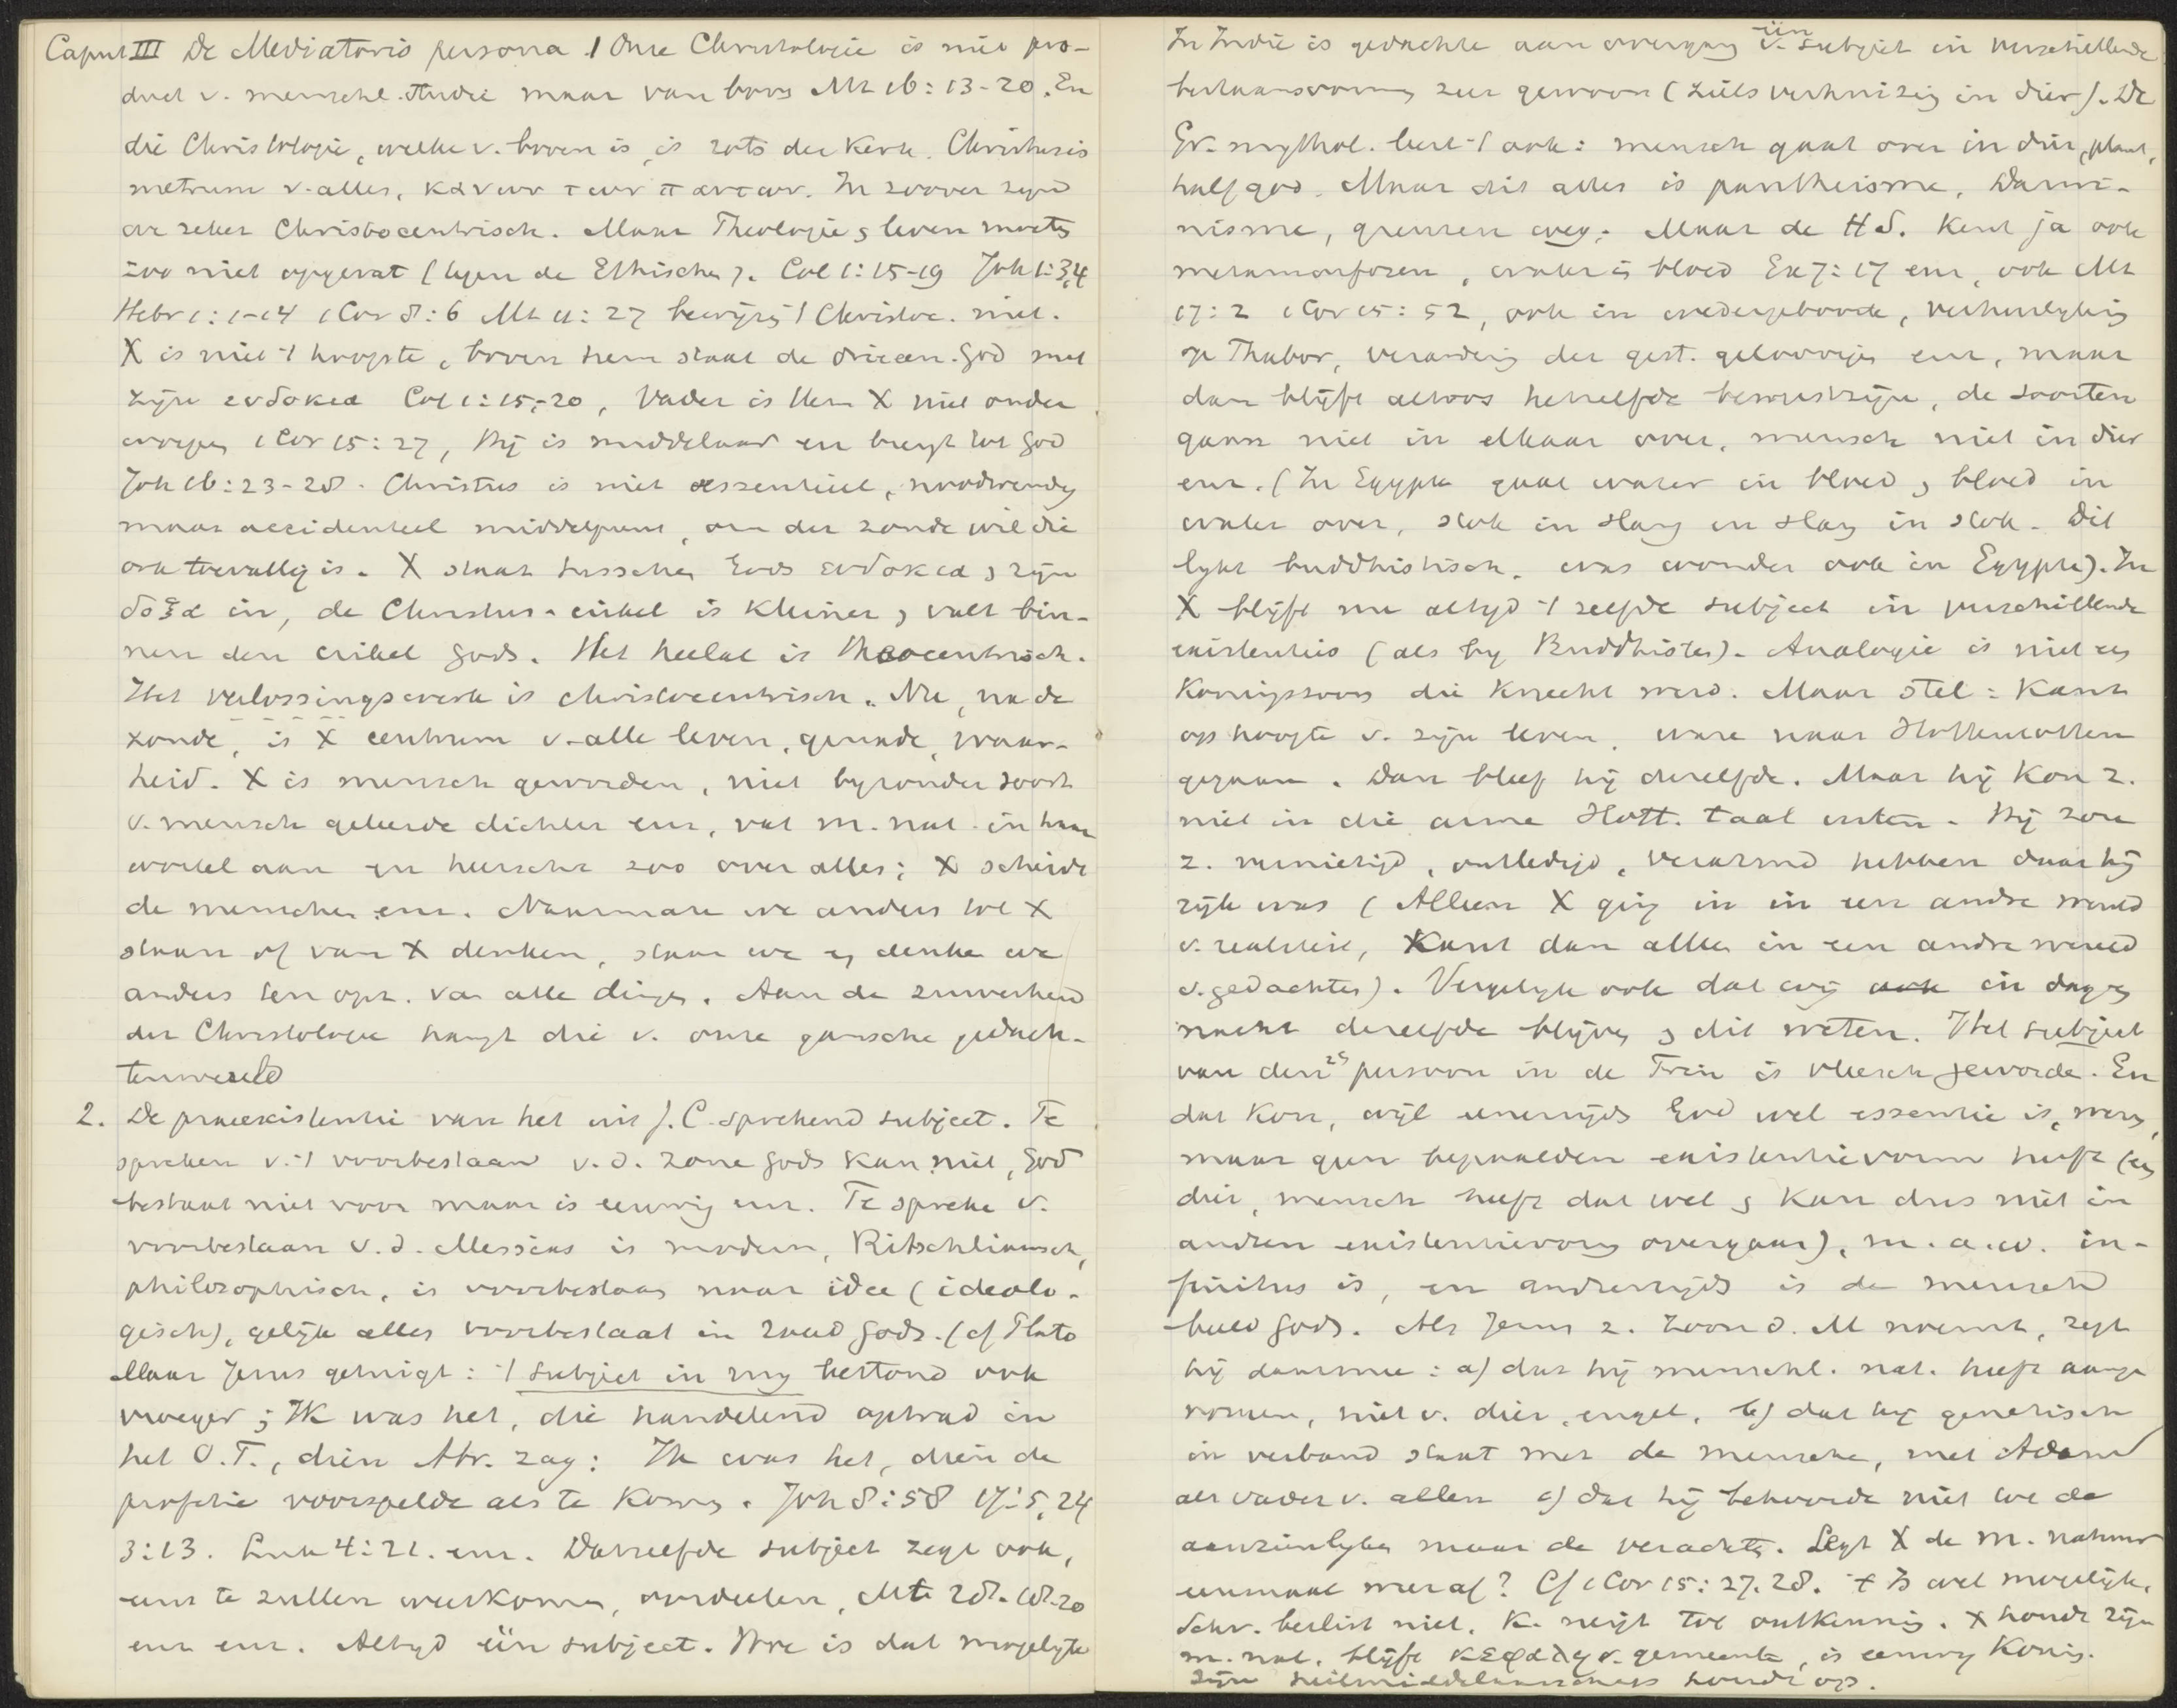 Caput III De Mediatoris persona 1 Onze Christologie is niet pro-
duct v. menschl. studie maar van boven Mt 16:13-20. En
die Christologie, welke v. boven is, is rots der Kerk. Christus is
metrum v. alles, κανων των παντων. In zoover zijn
we zeker Christocentrisch. Maar Theologie & leven moeten
zoo niet opgevat (tegen de Ethischen). Col 1:15-19 Joh 1:3,4
Hebr 1:1-14 1 Cor 8:6 Mt 11:27 bewijzen 't Christoc. niet.
X is niet 't hoogste, boven hem staat de drieeen. God met
zijn ευδοκια Col 1:15-20, Vader is Hem X niet onder
worpen 1 Cor 15:27, Hij is middelaar en brengt tot God
Joh 16:23-28. Christus is niet essentieel, noodwendig
maar accidenteel middelpunt, om der zonde wil die
ook toevallig is. X staat tusschen Gods ευδοκια & zijn
δοξα in, de Christus-cirkel is kleiner & valt bin-
nen den cirkel Gods. Het heelal is theocentrisch.
Het verlossingswerk is christocentrisch. Nu, na de
zonde, is X centrum v. alle leven, genade, waar-
heid. X is mensch geworden, niet byzonder soort
v. mensch geleerde dichter enz, vat m. nat. in haar
wortel aan en heerscht zoo over alles; X scheidt
de menschen enz. Naarmate we anders tot X
staan of van X denken, staan we en denken we
anders ten opz. van alle dingen. Aan de zuiverheid
der Christologie hangt die v. onze gansche gedach-
tenwereld
2. De praeexistentie van het uit J. C. sprekend subject. Te
spreken v. 't voorbestaan v. d. Zone Gods kan niet, God
bestaat niet voor maar is eeuwig enz. Te spreken v.
voorbestaan v. d. Messias is modern, Ritschliaansch,
philosophisch, is voorbestaan naar idee (ideolo-
gisch), gelijk alles voorbestaat in raad Gods. (cf Plato
Maar Jezus getuigt: 't subject in my bestond ook
vroeger; Ik was het, die handelend optrad in
het O.T., dien Abr. zag: Ik was het, dien de
profetie voorspelde als te komen. Joh 8:58 17:5, 24
3:13. Luk 4:21. enz. Datzelfde subject zegt ook,
eens te zullen weerkomen, oordeelen, Mt 28:18-20
enz enz. Altyd één subject. Hoe is dat mogelyk
In Indie is gedachte aan overgang v. één subject in verschillende
bestaansvormen zeer gewoon (zielsverhuizing in dier). De
Gr. mythol. leert 't ook: mensch gaat over in dier, plant,
halfgod. Maar dit alles is pantheisme, Darwi-
nisme, grenzen weg. Maar de H S. kent ja ook
metamorfozen, water is bloed Ex 7:17 enz, ook Mt
17:2 1 Cor 15:52, ook in wedergeboorte, verheerlyking
op Thabor, verandering der gest. geloovigen enz, maar
dan blijft altoos hetzelfde bewustzijn, de soorten
gaan niet in elkaar over, mensch niet in dier
enz. (In Egypte gaat water in bloed & bloed in
water over, stok in slang en slang in stok. Dit
lykt buddhistisch. was wonder ook in Egypte). In
X blijft nu altyd 't zelfde subject in verschillende
existenties (als by Buddhisten). Analogie is niet een
Koningszoon die knecht werd. Maar stel: Kant
op hoogte v. zijn leven, ware naar Hottentotten
gegaan. Dan bleef hij dezelfde. Maar hij kon z.
niet in die arme Hott. taal uiten. Hij zou
z. vernietigd, ontledigd, verarmd hebben daar hij
rijk was (Alleen X ging in in een andre wereld
v. realiteit, Kant dan alleen in een andre wereld
v. gedachten). Vergelyk ook dat wij in dag en
nacht dezelfde blijven & dit weten. Het subject
van den 2en persoon in de Trin is vleesch geworden. En
dat kon, wijl eenerzijds God wel essentie is, wezen,
maar geen bepaalden existentievorm heeft (een
dier, mensch heeft dat wel & kan dus niet in
andren existentievorm overgaan), m. a. w. in-
finitus is, en anderzijds is de mensch
beeld Gods. Als Jezus z. Zoon d. M noemt, zegt
hij daarmee: a) dat hij menschl. nat. heeft aange
nomen, niet v. dier, engel, b) dat hij genetisch
in verband staat met de menschen, met Adam
als vader v. allen c) dat hij behoorde niet tot de
aanzienlyken maar de verachten. Legt X de m. natuur
eenmaal weer af? Cf 1 Cor 15:27.28. 't Is wel mogelyk.
Schr. beslist niet. K. neigt tot ontkenning. X houdt zijn
m. nat. blijft κεφαλη v. gemeente, is eeuwig Koning.
Zijn heilmiddelaarschap houdt op.